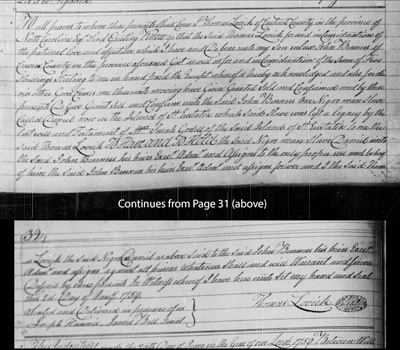 To all people to whom these presents shall come I Thomas Lovick of Carteret County in the province of
North Carolina Esqr. Send Greeting Know ye that the Said Thomas Lovick for and in consideration of
the paternal love and affection which I have and do bear unto my Son in law John Benners of
Craven County in the province aforesaid and in consideration of the Sum of Five
Shillings Sterling to me in hand paid the receipt whereof is hereby acknowledged and also for
other Good Causes me thereunto moving have Given Granted Sold and Confirmed and by these
presents Do Give Grant Sell and Confirm unto the Said John Benners One Negro man Slave
Called Daniel now in the Island of St. Eustatia which Said Slave was left a Legacy by the
last will and Testament of Mrs. Sarah of the Said Island of St. Eustatia to me the
Said Thomas Lovick To Have and To Hold the Said Negro man Slave Daniel unto
the Said John Benners his heirs Exec. Adm. and Assigns to the only proper use and behoof
of him the Said John Benners his heirs Exec. Adm. and assigns forever and I the Said Thomas
Continues from Page 31 (above)
32
Lovick the Said Negro Daniel as above Said to the Said John Benners his heirs Exec.
Adm. and assigns against all persons whatsoever Shall and will Warrant and forever
Defend by these presents In Witness whereof I have hereunto Set my hand and Seal
this 2d Day of 1759
Sealed and Delivered in presence of us
Thomas Lovick Seal
Joseph James Bell Junr.
This made the Day of in the Year of our Lord 1759 Between Will